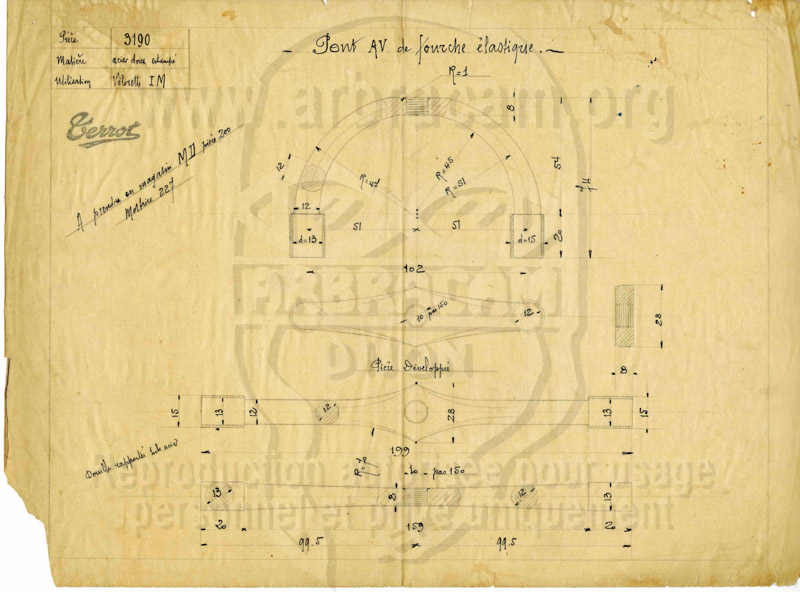 Pièce 3190
Matière acier doux estampé
Utilisation Vélorette IM
Terrot
— Pont AV de fourche élastique. —
R=1
A prendre en magasin MII pièce 200
Motrice 227
www.arbracam.org
8
12
R=47
R=45
R=51
54
74
12
51
51
20
d=13
d=15
102
ARBRACAM
DIJON
10 pas 150
12
28
8
Pièce Développée
15
13
12
12
28
13
15
199
Douille rapportée tube acier
10 pas 150
13
8
12
13
Reproduction autorisée pour usage
personnel et privé uniquement
20
159
20
99.5
99.5